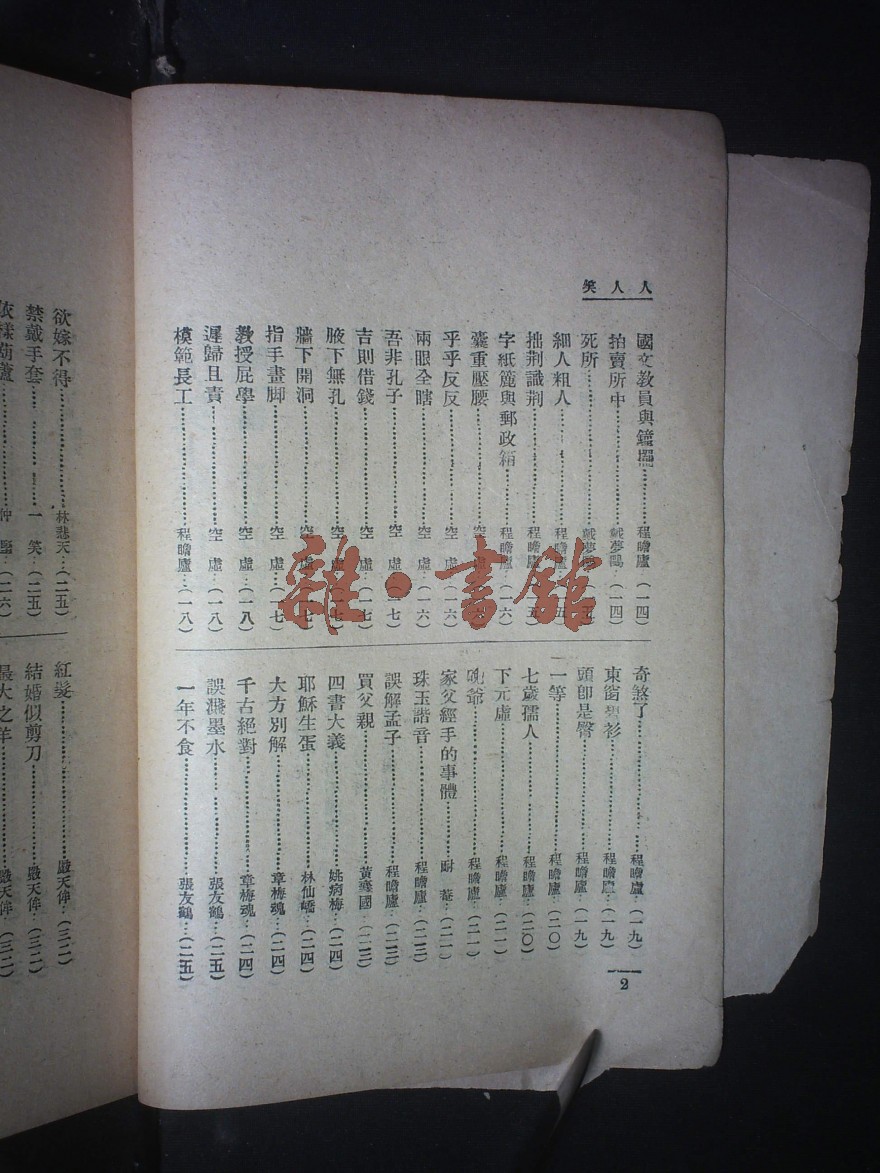 人人笑
國文教員與鐘⋯⋯程瞻廬⋯(一四)
拍賣所中⋯⋯戴夢鷗⋯(一四)
死所⋯⋯戴夢
細人粗人⋯⋯程瞻廬
拙荆識荆⋯⋯程瞻廬
字紙簏與郵政箱⋯⋯程瞻廬⋯(一六)
囊重壓腰⋯⋯空虛
乎乎反反⋯⋯空虛⋯(一六)
兩眼全瞎⋯⋯空虛⋯(一六)
吾非孔子⋯⋯空虛⋯(一七)
吉則借錢⋯⋯空虛⋯(一七)
腋下無孔⋯⋯空虛⋯(一七)
牆下開洞⋯⋯空虛⋯(一七)
指手畫脚⋯⋯空虛⋯(一七)
教授屁學⋯⋯空虛⋯(一八)
遲歸且責⋯⋯空虛⋯(一八)
模範長工⋯⋯程瞻廬⋯(一八)
奇煞了⋯⋯程瞻廬⋯(一九)
東窗 衫⋯⋯程瞻廬⋯(一九)
頭卽是臀⋯⋯程瞻廬⋯(一九)
一等⋯⋯程瞻廬⋯(二〇)
七歲孺人⋯⋯程瞻廬⋯(二〇)
下元虛⋯⋯程瞻廬⋯(二一)
晚爺⋯⋯程瞻廬⋯(二一)
家父經手的事體⋯⋯耐菴⋯(二一)
珠玉諧音⋯⋯程瞻廬⋯(二三)
誤解孟子⋯⋯程瞻廬⋯(二三)
買父親⋯⋯黃 國⋯(二三)
四書大義⋯⋯姚痾梅⋯(二四)
耶穌生蛋⋯⋯林仙嶠⋯(二四)
大方別解⋯⋯章梅魂⋯(二四)
千古絕對⋯⋯章梅魂⋯(二四)
誤濺墨水⋯⋯張友鶴⋯(二五)
一年不食⋯⋯張友鶴⋯(二五)
2
欲嫁不得⋯⋯林悲天⋯(二五)
禁戴手套⋯⋯一笑⋯(二五)
依樣葫蘆⋯⋯仲 ⋯(二六)
紅髮⋯⋯嚴天侔⋯(三二)
結婚似剪刀⋯⋯嚴天侔⋯(三二)
最大之羊⋯⋯嚴天侔⋯(三二)
雜·書館